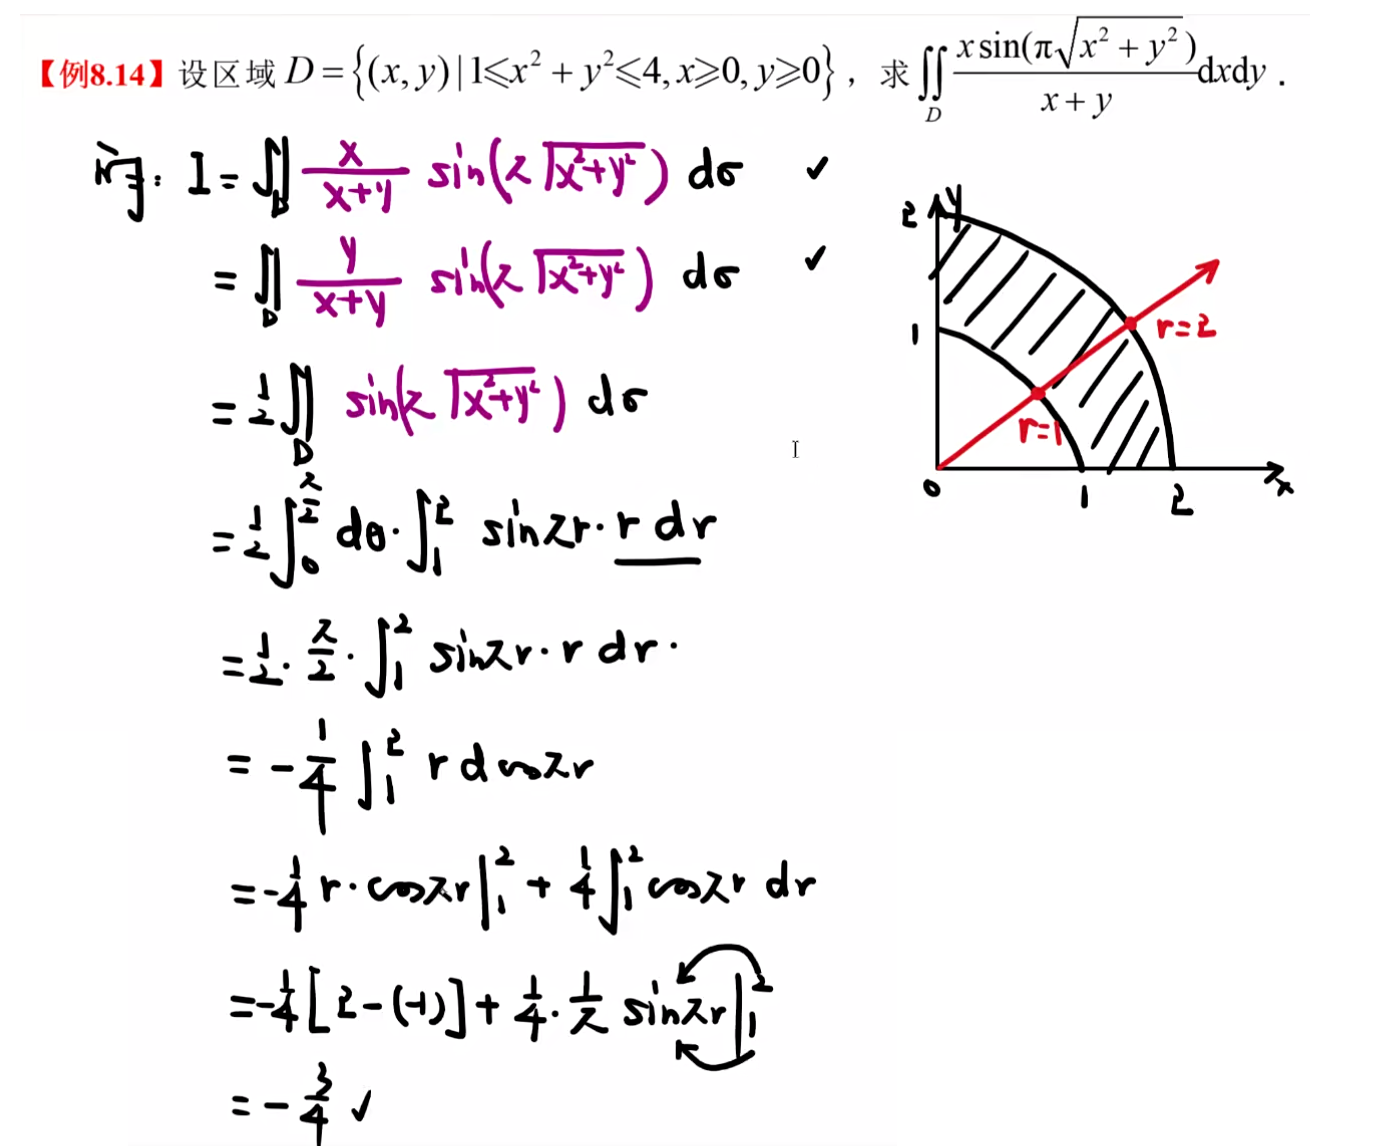 【例8.14】设区域 D={(x,y)|1≤x²+y²≤4,x≥0,y≥0}，求∬_D xsin(π√(x²+y²))/(x+y) dxdy．
解: I = ∬_D x/(x+y) sin(π√(x²+y²)) dσ ✓
= ∬_D y/(x+y) sin(π√(x²+y²)) dσ ✓
= 1/2 ∬_D sin(π√(x²+y²)) dσ
= 1/2 ∫_0^{π/2} dθ · ∫_1^2 sinπr · r dr
= 1/2 · π/2 · ∫_1^2 sinπr · r dr ·
= - 1/4 ∫_1^2 r d cosπr
= - 1/4 r · cosπr |_1^2 + 1/4 ∫_1^2 cosπr dr
= - 1/4 [2-(-1)] + 1/4 · 1/π sinπr |_1^2
= - 3/4 ✓
2 y
1
r=2
r=1
0 1 2 x